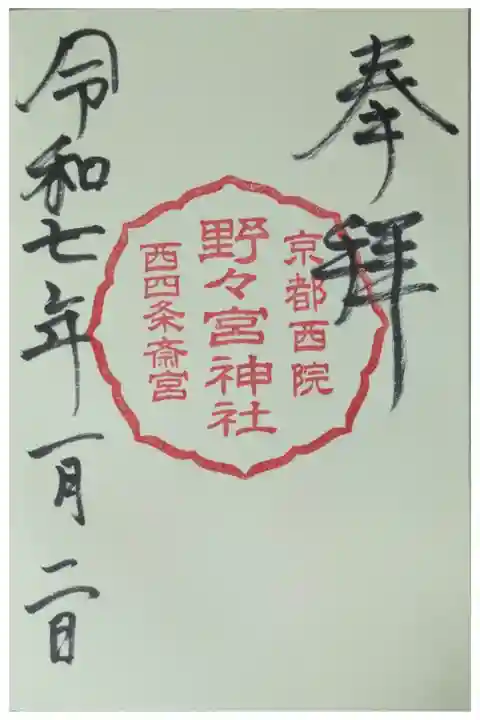 奉拝
京都西院
野々宮神社
西四条斎宮
令和七年一月二日